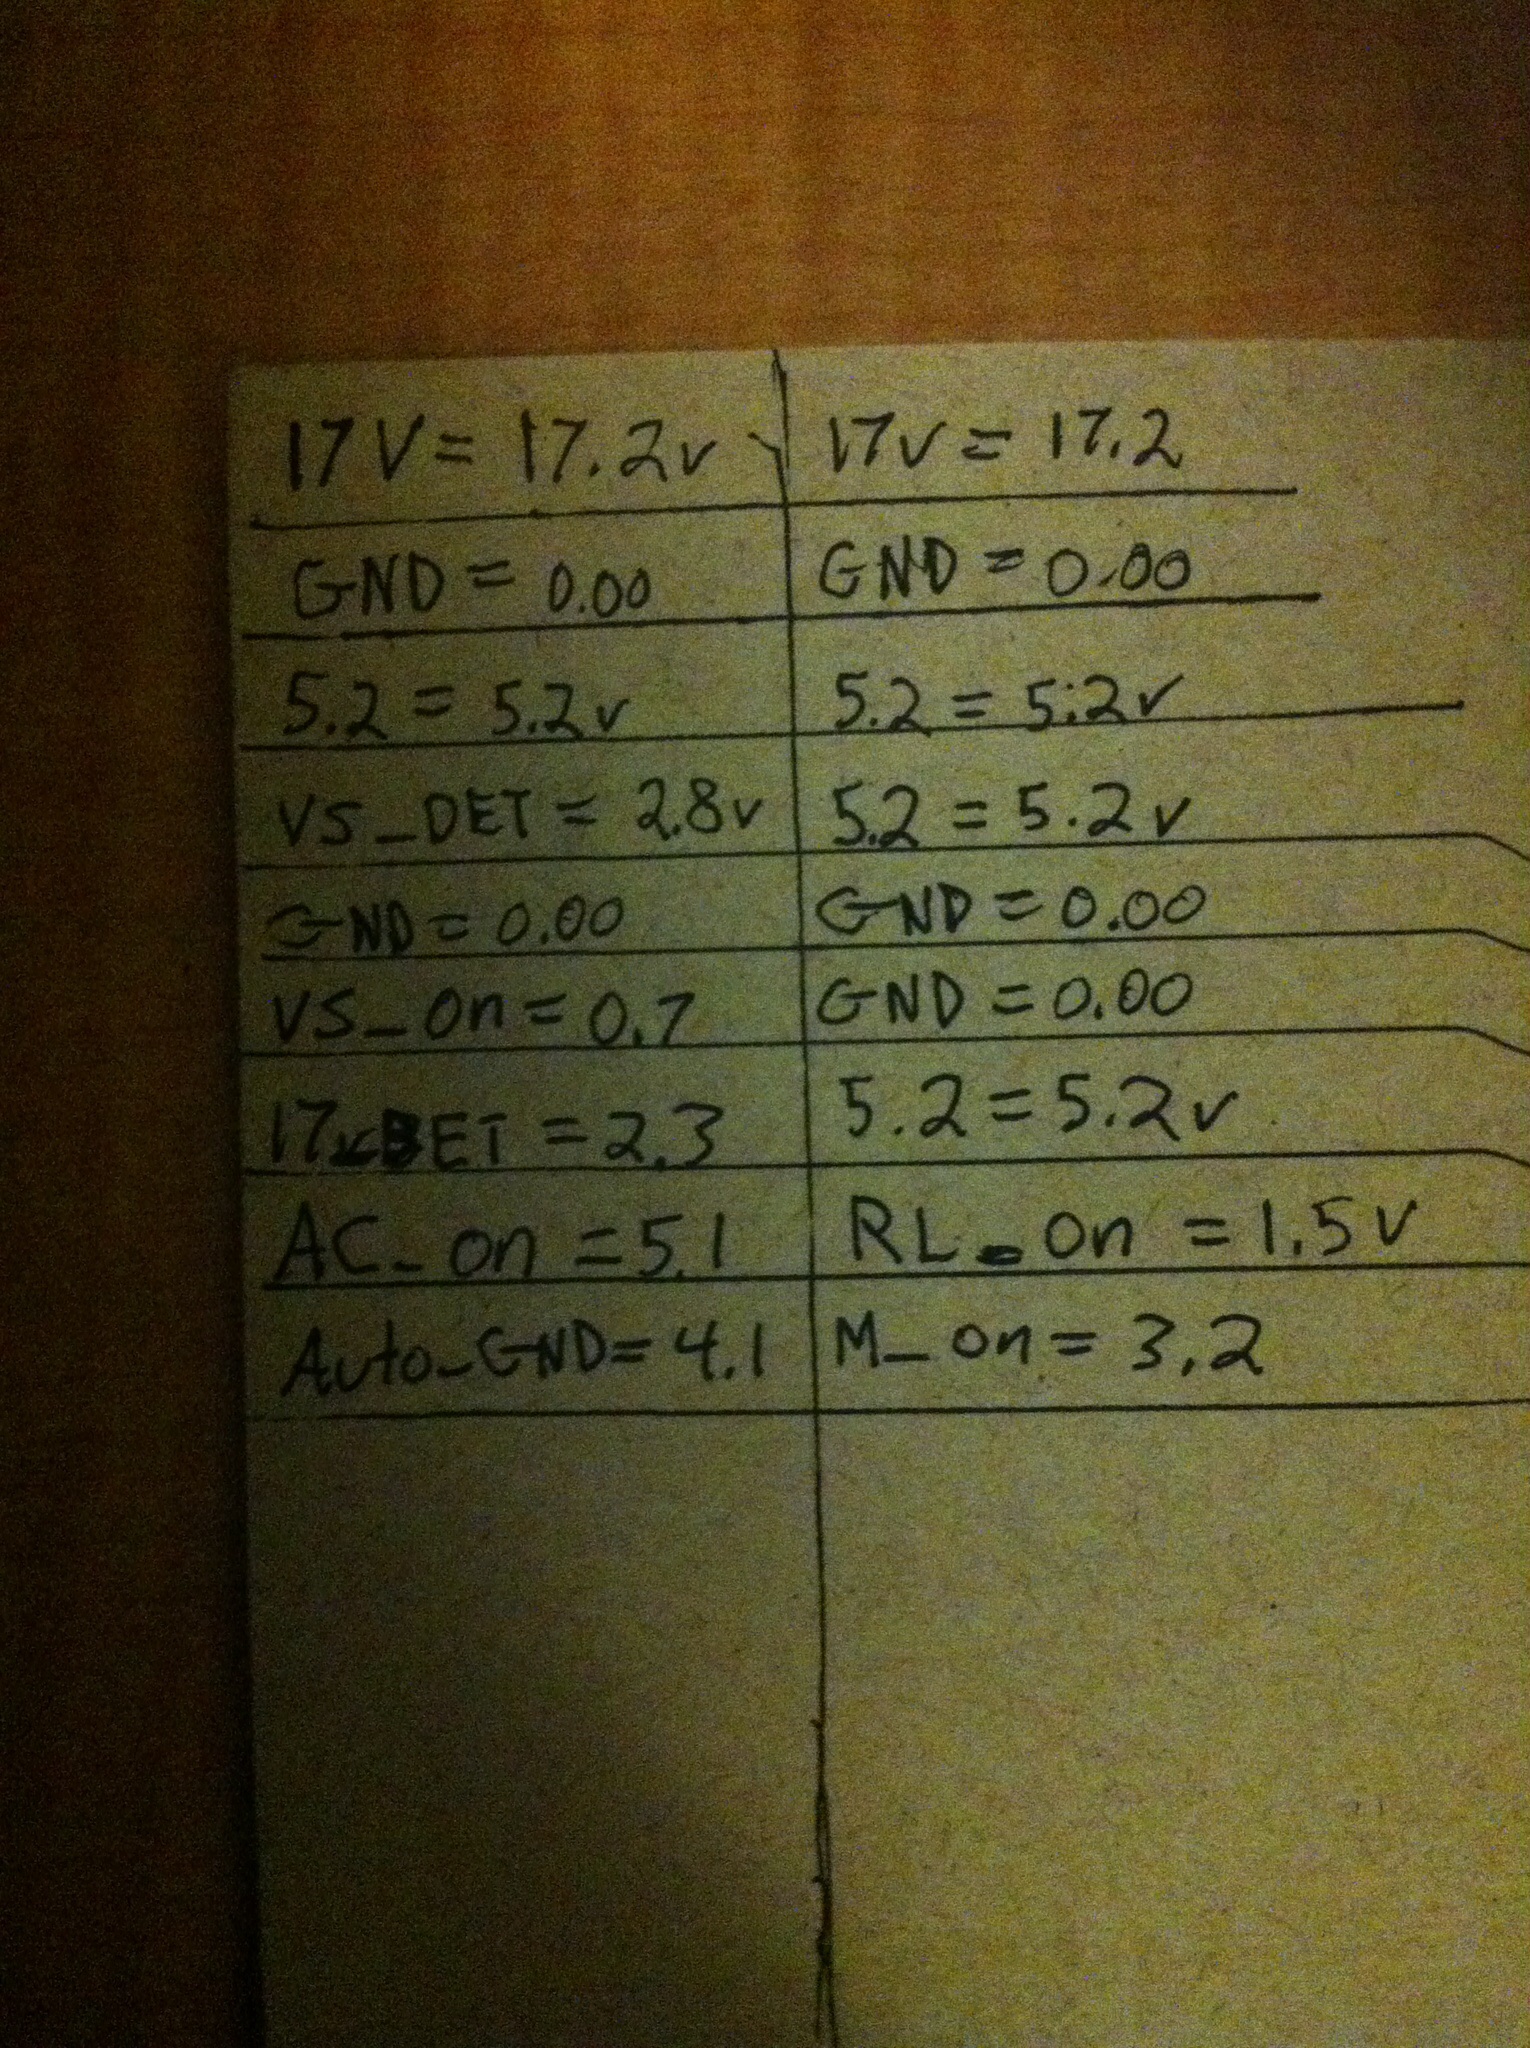 17V = 17.2v 17v = 17.2
GND = 0.00 GND = 0.00
5.2 = 5.2v 5.2 = 5.2v
VS_DET = 2.8v 5.2 = 5.2v
GND = 0.00 GND = 0.00
VS_on = 0.7 GND = 0.00
ET = 2.3 5.2 = 5.2v
AC_on = 5.1 RL_on = 1.5v
Auto_GND = 4.1 M_on = 3.2